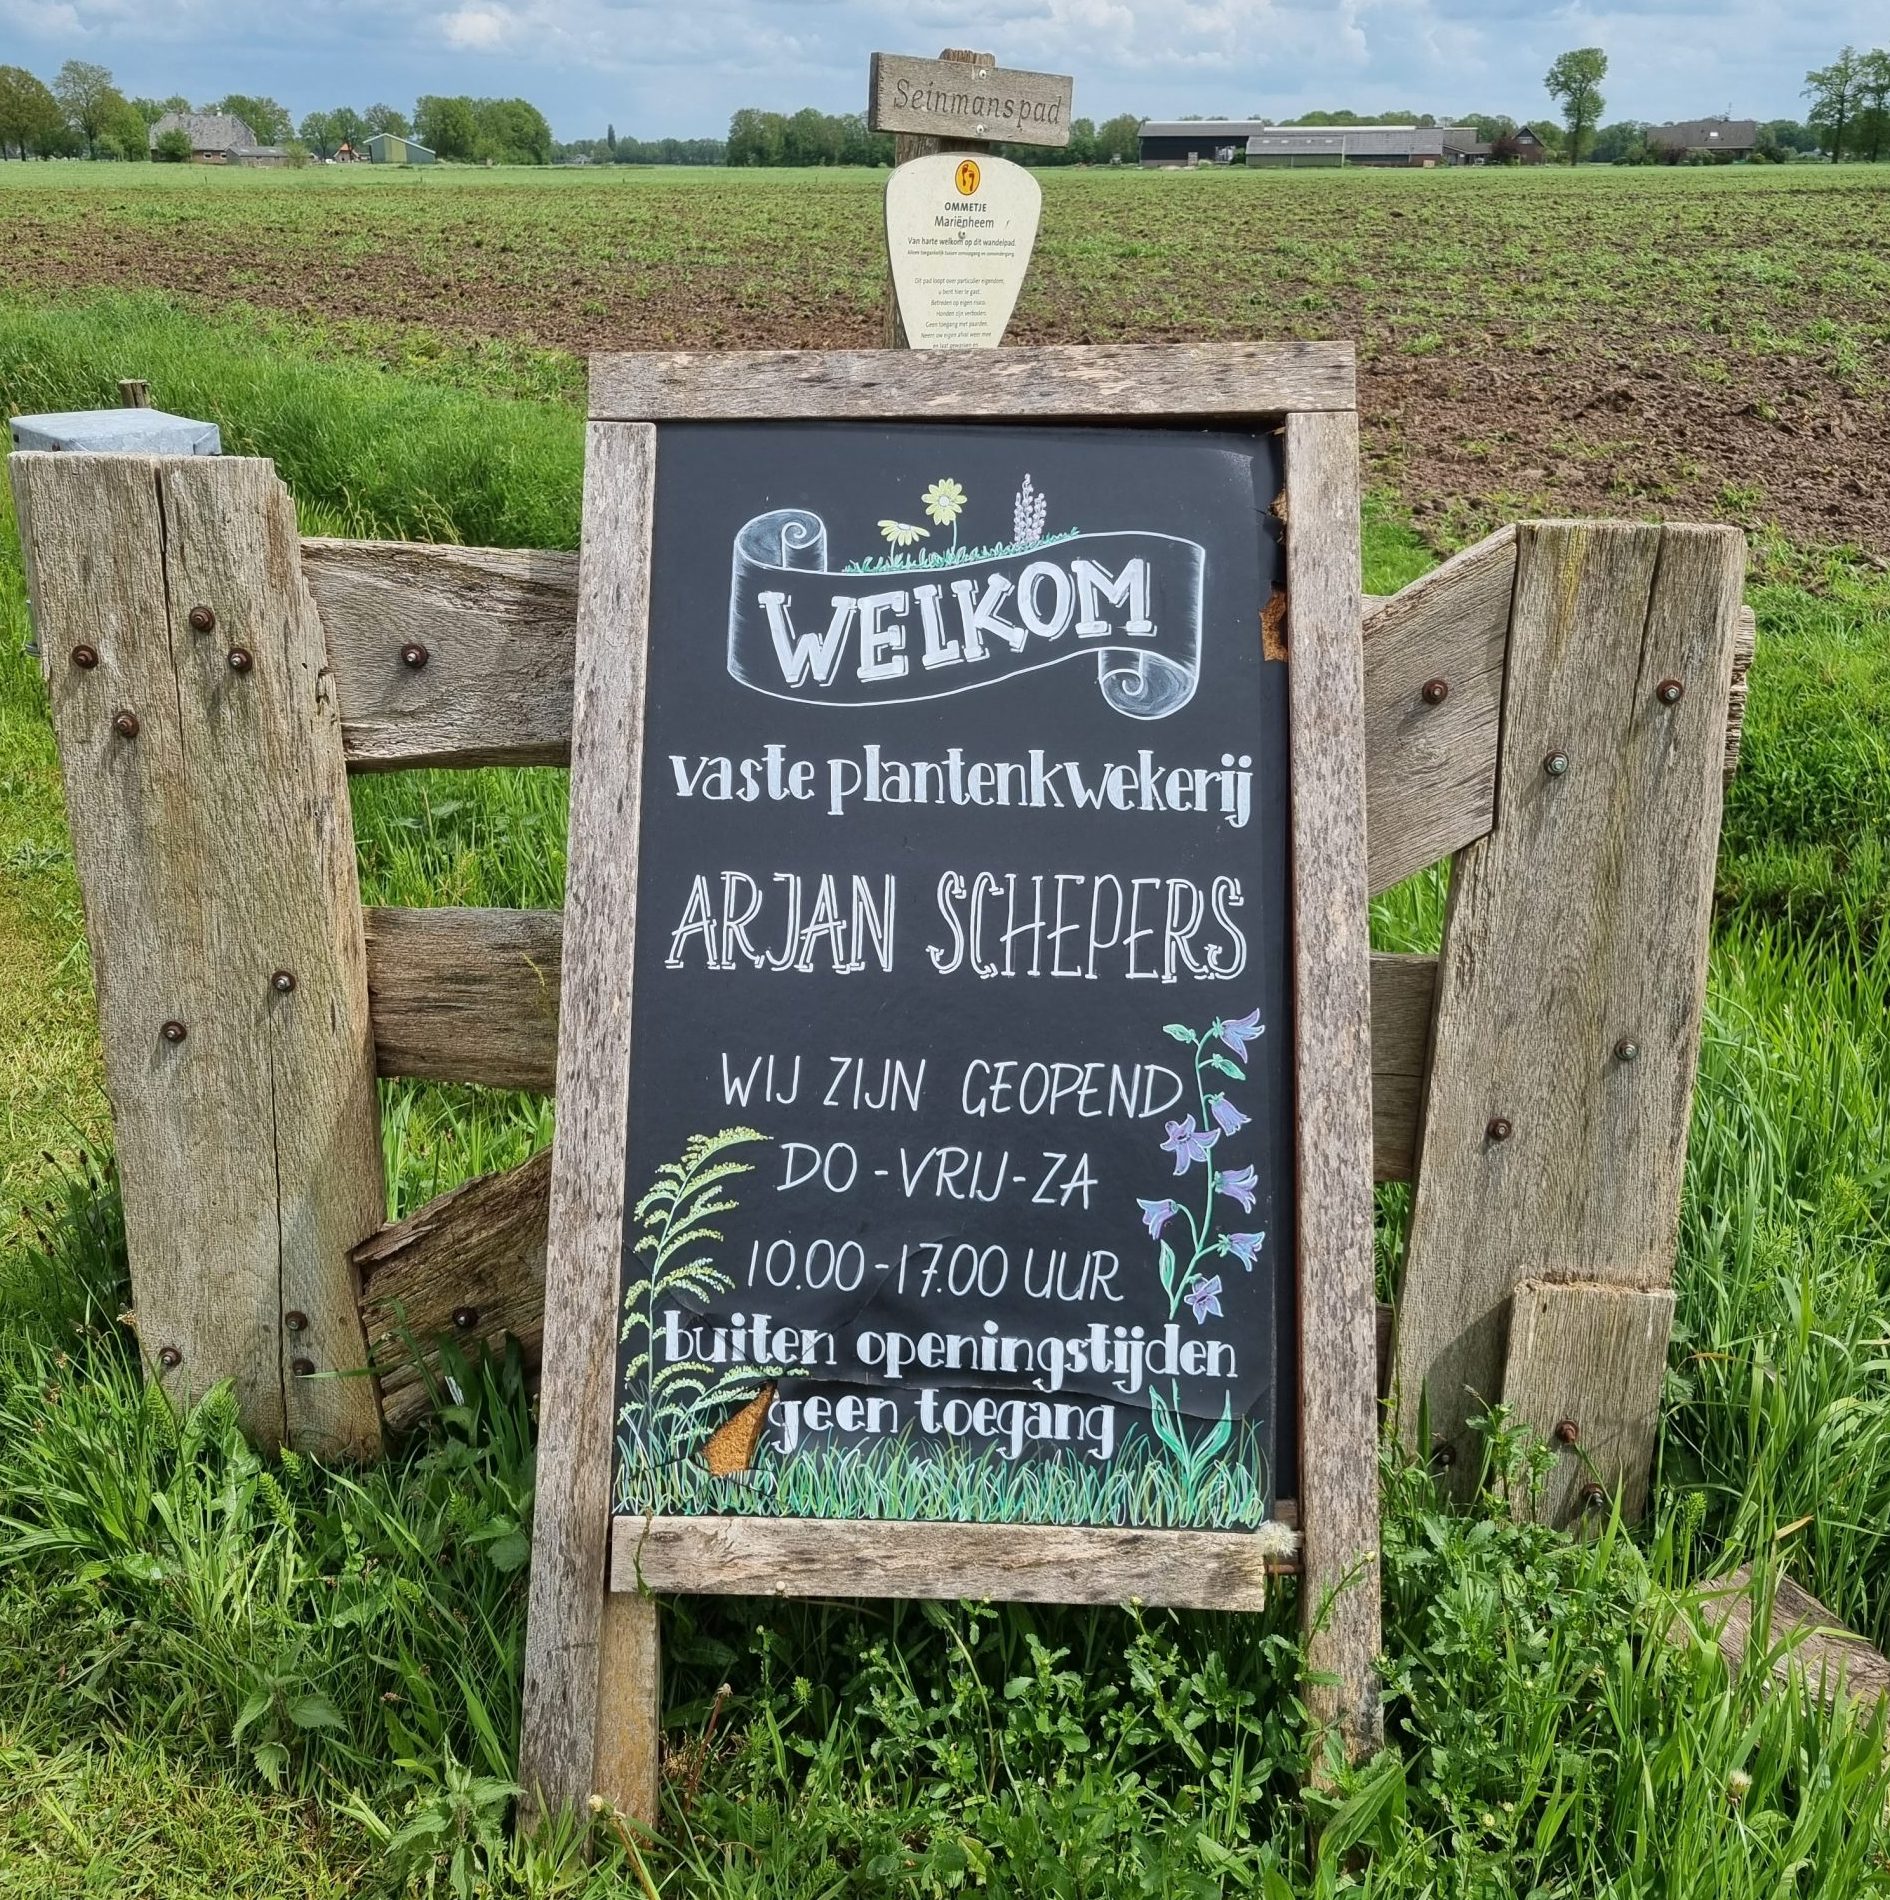 Seinmanspad
OMMETJE
Mariënheem
Van harte welkom op dit wandelpad.
Alleen toegankelijk tussen zonsopgang en zonsondergang.
Dit pad loopt over particulier eigendom,
u bent hier te gast.
Betreden op eigen risico.
Honden zijn verboden.
Geen toegang met paarden.
Neem uw eigen afval weer mee
en laat gewassen en
WELKOM
vaste plantenkwekerij
ARJAN SCHEPERS
WIJ ZIJN GEOPEND
DO-VRIJ-ZA
10.00-17.00 UUR
buiten openingstijden
geen toegang